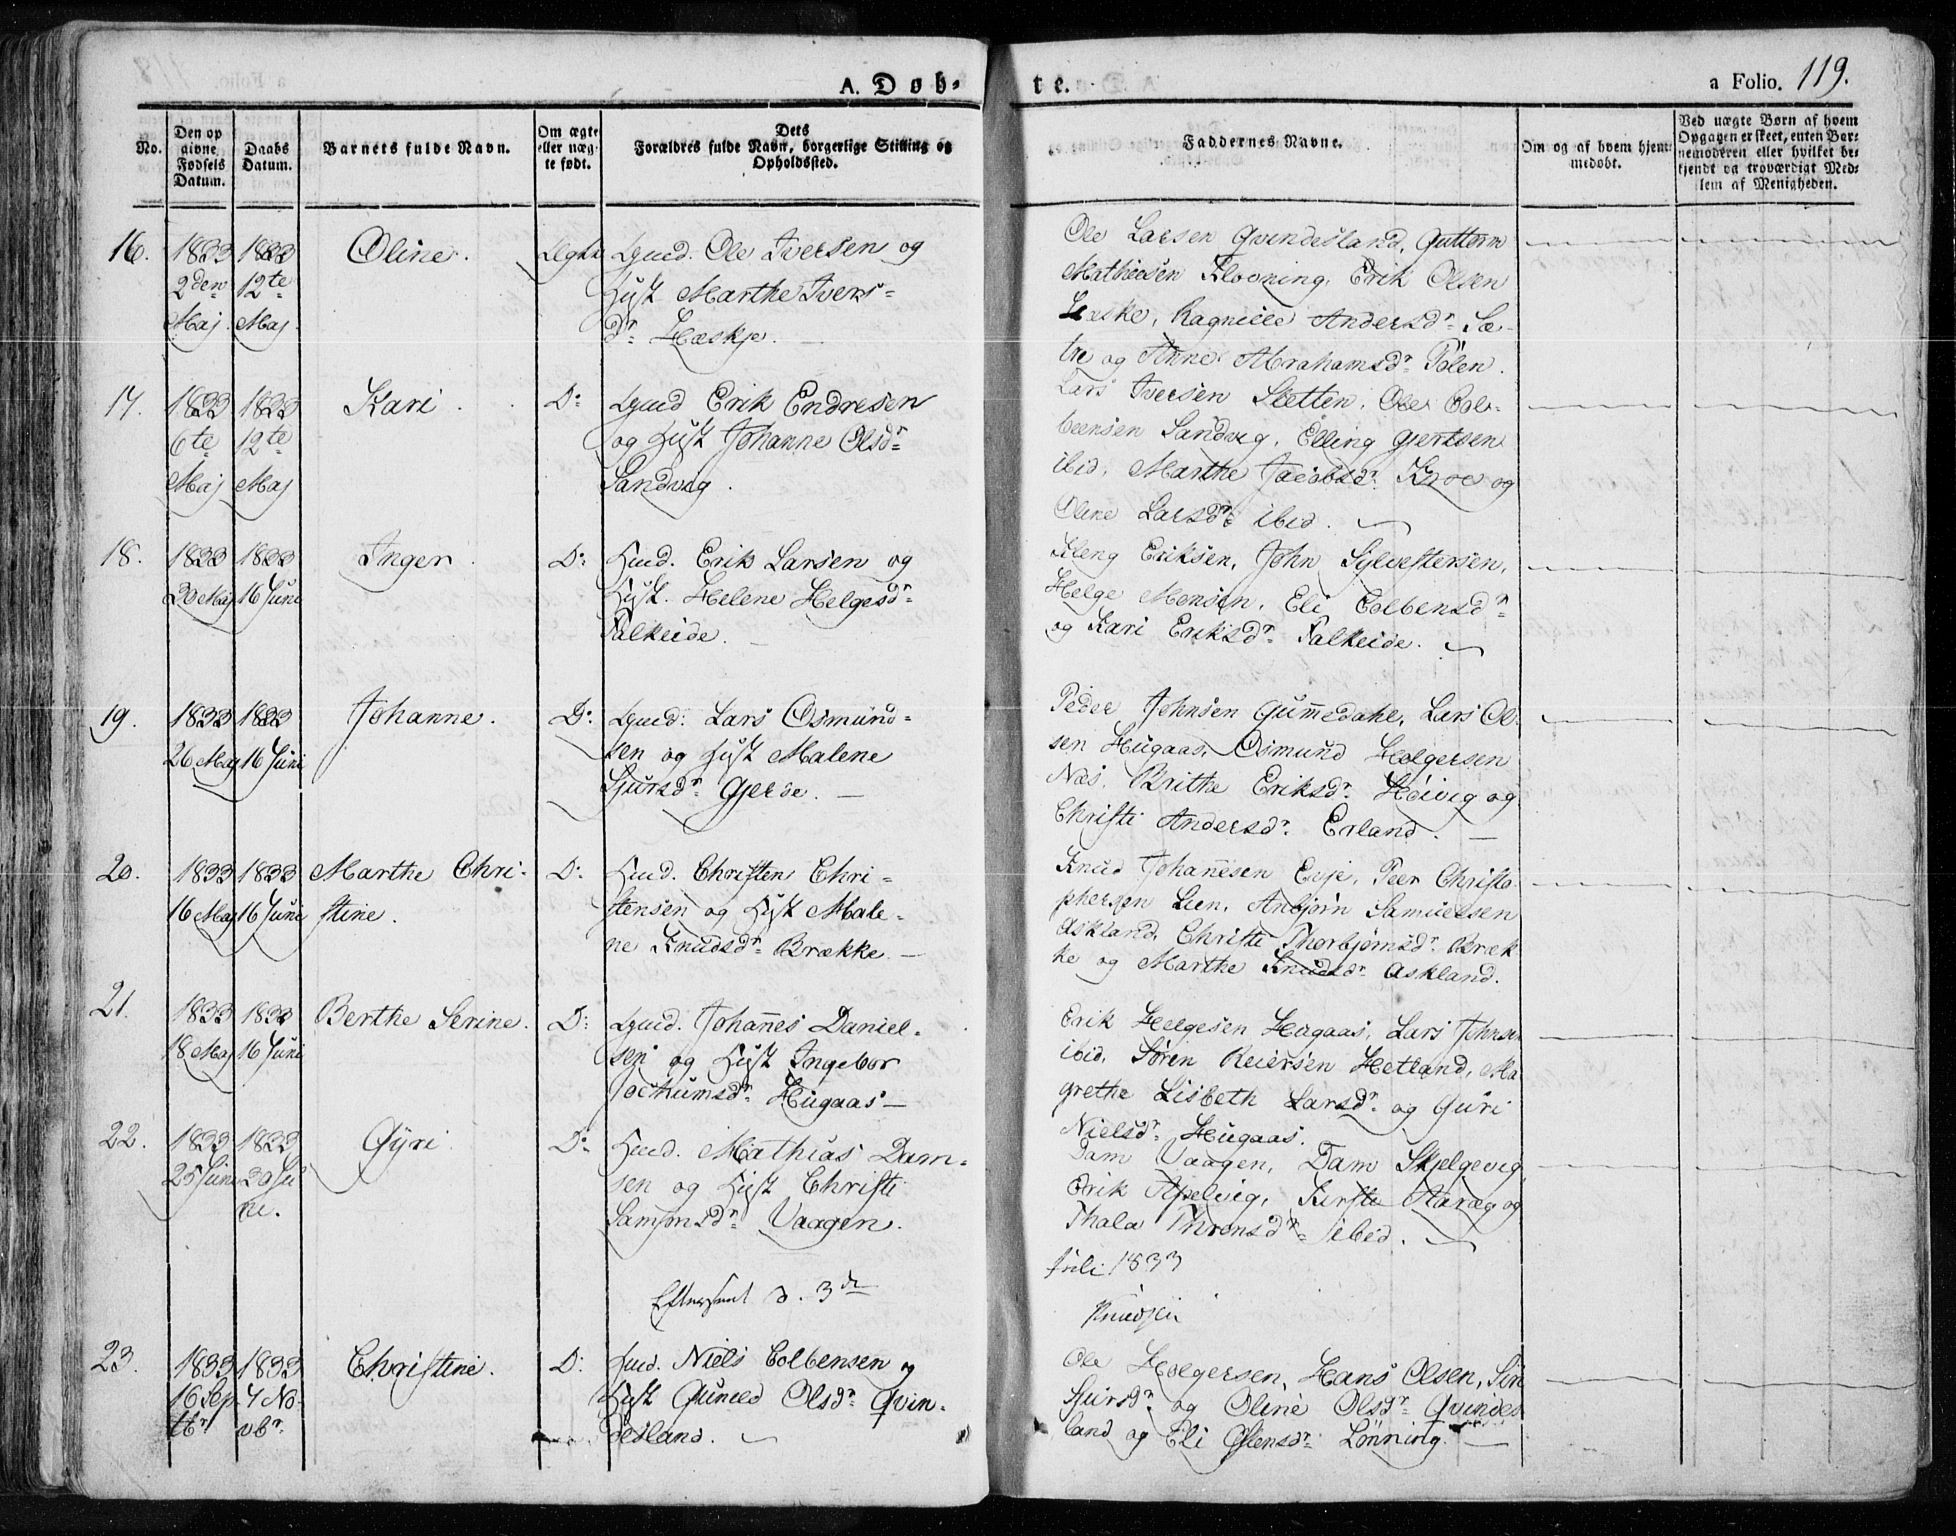 A. Døb-
te.
a Folio. 119.
No.
Den op
givne
Fødsels
Datum.
Daabs
Datum.
Barnets fulde Navn.
Om ægte
eller uæg-
te født.
Dets
Forældres fulde Navn, borgerlige Stilling og
Opholdssted.
Faddernes Navne.
Om og af hvem hjem-
medøbt.
Ved uægte Børn af hvem
Opgaven er skeet, enten Bar-
nemoderen eller hvilket be-
kjendt og troværdigt Med-
lem af Menigheden.
16.
1833
2den
Maj.
1833
12te
Maj.
Oline.
Ægte
Ole Iversen og
Hust Marthe Ivers-
dr. Hæskje.
Ole Larsen Qvindesland, Guttorm
Mathiesen Erik Olsen
Andersdr. Sæ-
tre og Anne Abrahamsdr.
17.
1833
6te
Maj
1833
12te
Maj
Kari.
Do.
Erik Endresen
og Hust Johanne Olsdr.
Sandvig.
Lars Iversen Sletten, Ole Col-
beensen Sandvig, Elling Gjertsen
ibid. Marthe Jacobsdr. og
Oline Larsdr. ibid.
18.
1833
30 Maj
1833
16 Juni
Inger
Do:
Erik Larsen og
Hust. Helene Helgesdr.
Falkeide.
Eriksen, John Sylvestersen,
Helge Monsen, Eli Colbensdr.
og Kari Eriksdr. Falkeide.
19.
1833
26 Maj
1833
16 Juni
Johanne.
Do:
Lars Osmund-
sen og Hust Malene
Sjursdr. Gjerde.
Peder Johnsen Gummedahl, Lars Ol-
sen Hugaas, Osmund Holgersen
Næs, Brithe Eriksdr. Høivig og
Christi Andersdr. Erland.
20.
1833
16 Maj
1833
16 Juni
Marthe Chri-
stine.
Do:
Christen Chri-
stensen og Hust Male-
ne Knudsdr. Brække
Knud Johannesen Euje, Peer Christo-
phersen Lien, Anbjørn Samuelsen
Askland, Christi Thorbjørnsdr. Bræk-
ke og Marthe Knudsdr. Askland.
21.
1833
18 Maj
1833
16 Juni
Berthe Serine.
Do:
Johannes Daniel-
sen og Hust Ingebor
Jochumsdr. Hugaas
Erik Helgesen Hugaas, Lars Johnsen
ibid, Søren Reiersen Hetland, Ma-
grethe Lisbeth Larsdr. og Guri
Nielsdr. Hugaas.
22.
1833
25 Juni
1833
30 Ju-
ni.
Gyri
Do
Mathias Dam-
sen og Hust Christi
Samsonsdr. Vaagen.
Dam Vaagen, Dam Skjelgevig,
Erik Apelvig, Kirsti og
Thala ibid.
Eftersent d. 3die
Juli 1833
Knudsen
23.
1833
16 Sep-
tbr
1833
7 No-
vbr.
Christine.
Do:
Niels Colbensen og
Hust Gunild Olsdr. Qvin-
desland.
Ole Holgersen, Hans Olsen,
Sjursdr. og Oline Olsdr. Qvindes-
land og Eli Lønning.